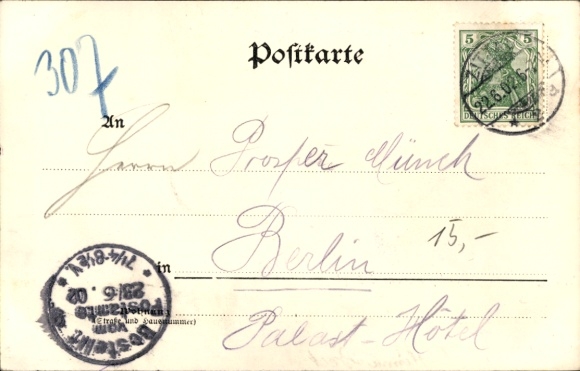 307
Postkarte
5
DEUTSCHES REICH
22.6.02.6-
An
Herrn Prosper Münch
Berlin
15,-
in
Wohnung
(Straße und Hausnummer)
Palast-Hôtel
Bestellt
vom
Postamte
23/6. 02
7¼-8½V.